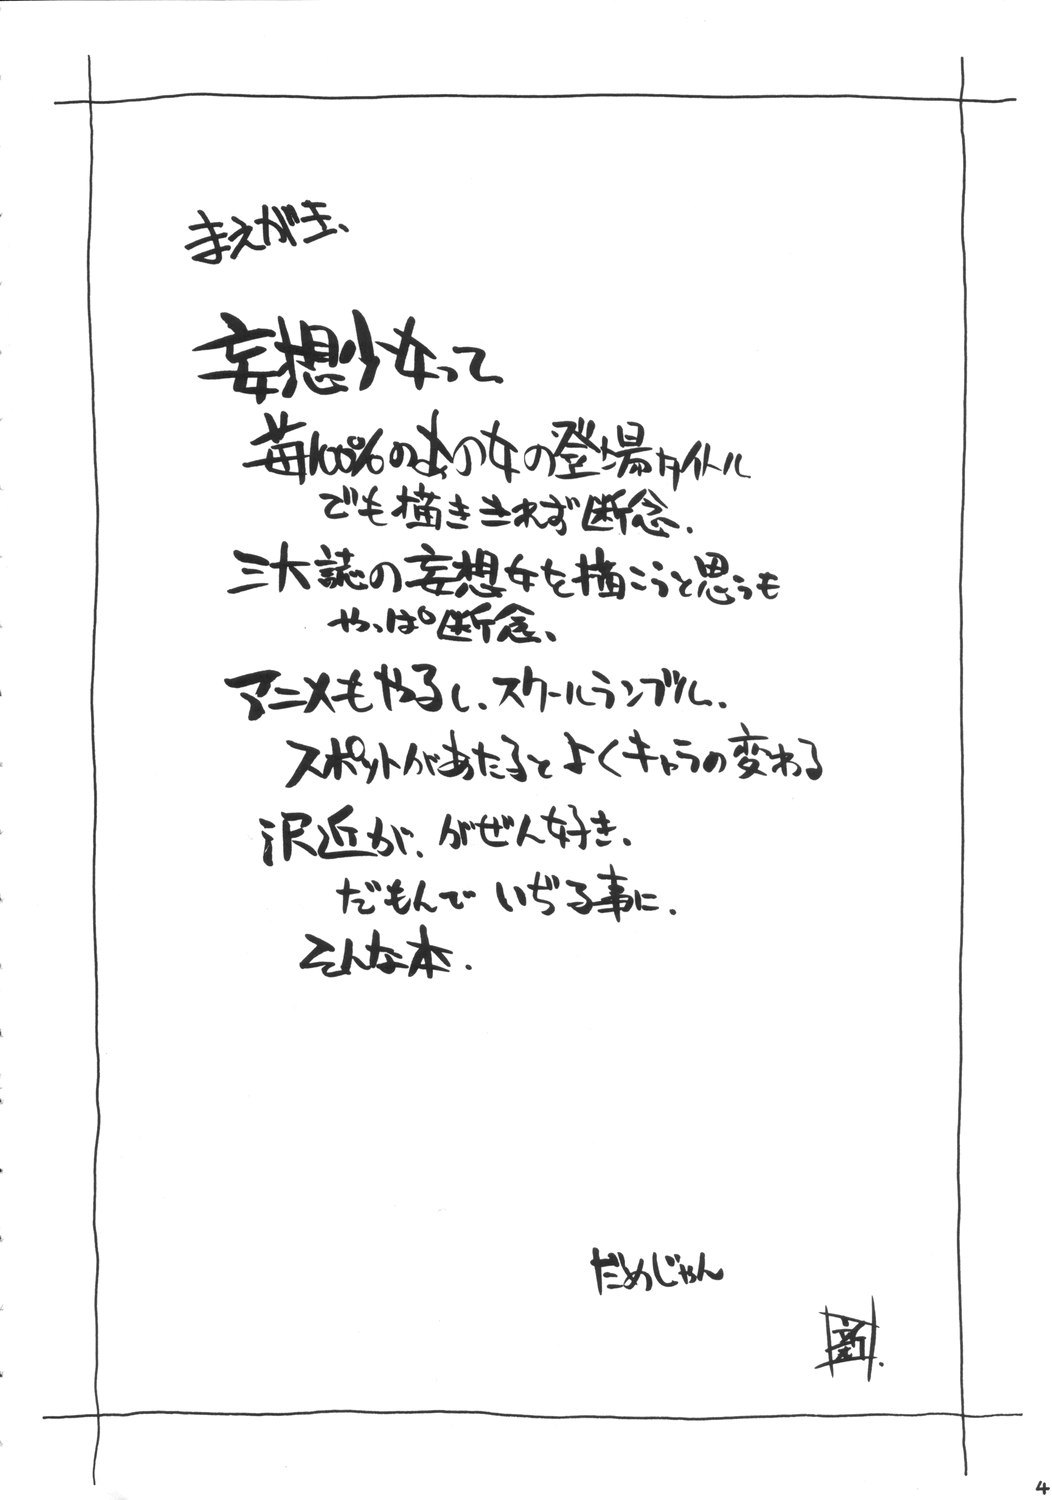 まえがき、
妄想少女って
苺100%のあの女の登場タイトル
でも描ききれず断念.
三大誌の妄想女を描こうと思うも
やっぱ断念、
アニメもやるし、スクールランブル.
スポットがあたるとよくキャラの変わる
沢近が、がぜん好き.
だもんで いぢる事に.
そんな本.
だめじゃん
新.
4